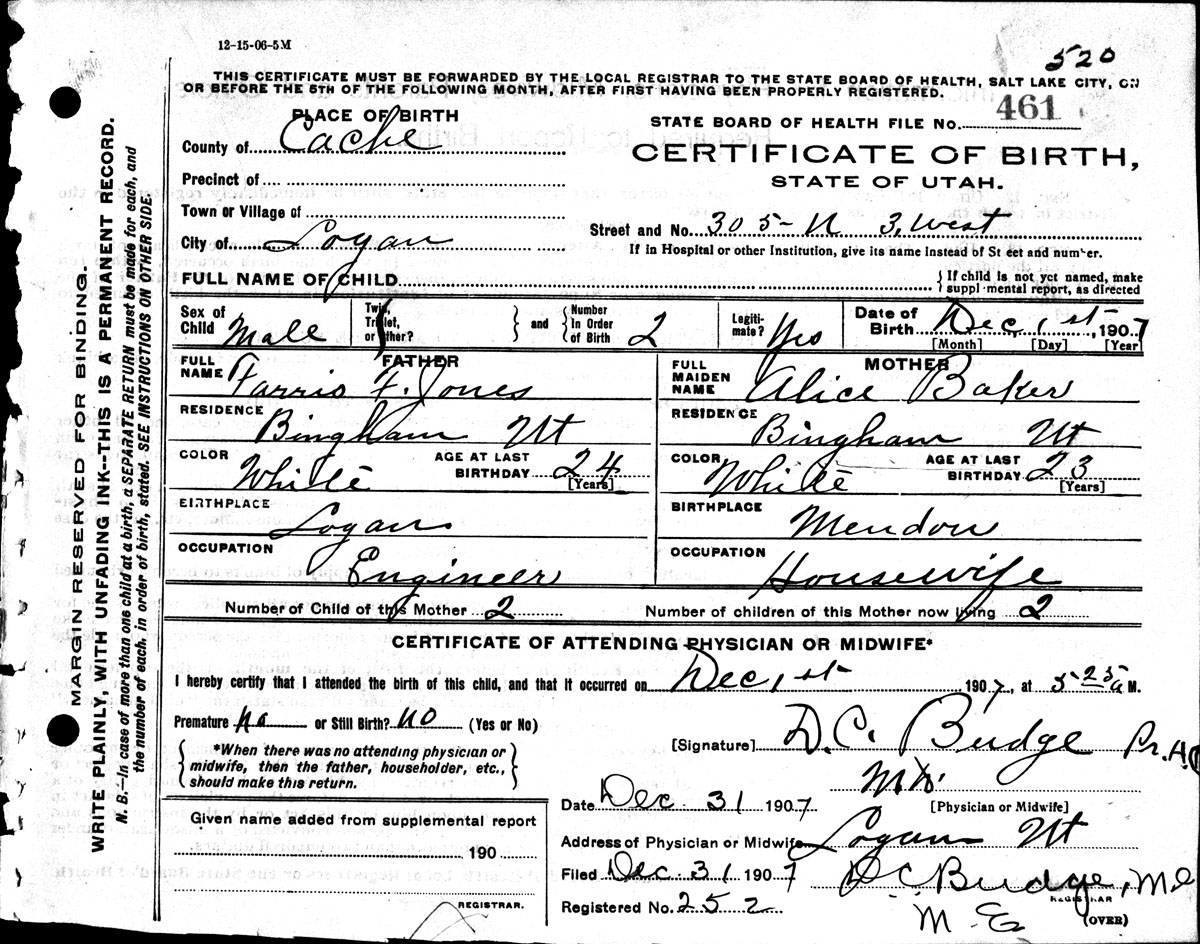 12-15-06-5M
520
THIS CERTIFICATE MUST BE FORWARDED BY THE LOCAL REGISTRAR TO THE STATE BOARD OF HEALTH, SALT LAKE CITY, ON
OR BEFORE THE 5TH OF THE FOLLOWING MONTH, AFTER FIRST HAVING BEEN PROPERLY REGISTERED.
PLACE OF BIRTH
STATE BOARD OF HEALTH FILE No. 461
County of Cache
CERTIFICATE OF BIRTH,
Precinct of
STATE OF UTAH.
Town or Village of
Street and No. 305- N 3, West
City of Logan
If in Hospital or other Institution, give its name instead of St eet and number.
FULL NAME OF CHILD
{ If child is not yet named, make
suppl mental report, as directed
Sex of Child Male
Twin, Triplet, or other? } and { Number in Order of Birth 2
Legiti- mate? Yes
Date of Birth Dec, 1st, 1907
[Month] [Day] [Year]
FATHER
FULL NAME Farris F. Jones
MOTHER
FULL MAIDEN NAME Alice Baker
RESIDENCE Bingham Ut
RESIDENCE Bingham Ut
COLOR White AGE AT LAST BIRTHDAY 24 [Years]
COLOR White AGE AT LAST BIRTHDAY 23 [Years]
BIRTHPLACE Logan
BIRTHPLACE Mendon
OCCUPATION Engineer
OCCUPATION Housewife
Number of Child of this Mother 2 Number of children of this Mother now living 2
CERTIFICATE OF ATTENDING PHYSICIAN OR MIDWIFE*
I hereby certify that I attended the birth of this child, and that it occurred on Dec, 1st 1907, at 5 25 a M.
Premature no or Still Birth? no (Yes or No)
[Signature] D.C. Budge
M.D.
[Physician or Midwife]
{ *When there was no attending physician or
midwife, then the father, householder, etc.,
should make this return. }
Date Dec 31 1907
Given name added from supplemental report
190
REGISTRAR.
Address of Physician or Midwife Logan Ut
Filed Dec. 31 1907 D C Budge, M.D.
REGISTRAR
Registered No. 252
(OVER)
MARGIN RESERVED FOR BINDING.
WRITE PLAINLY, WITH UNFADING INK--THIS IS A PERMANENT RECORD.
N. B.—In case of more than one child at a birth, a SEPARATE RETURN must be made for each, and
the number of each, in order of birth, stated. SEE INSTRUCTIONS ON OTHER SIDE.